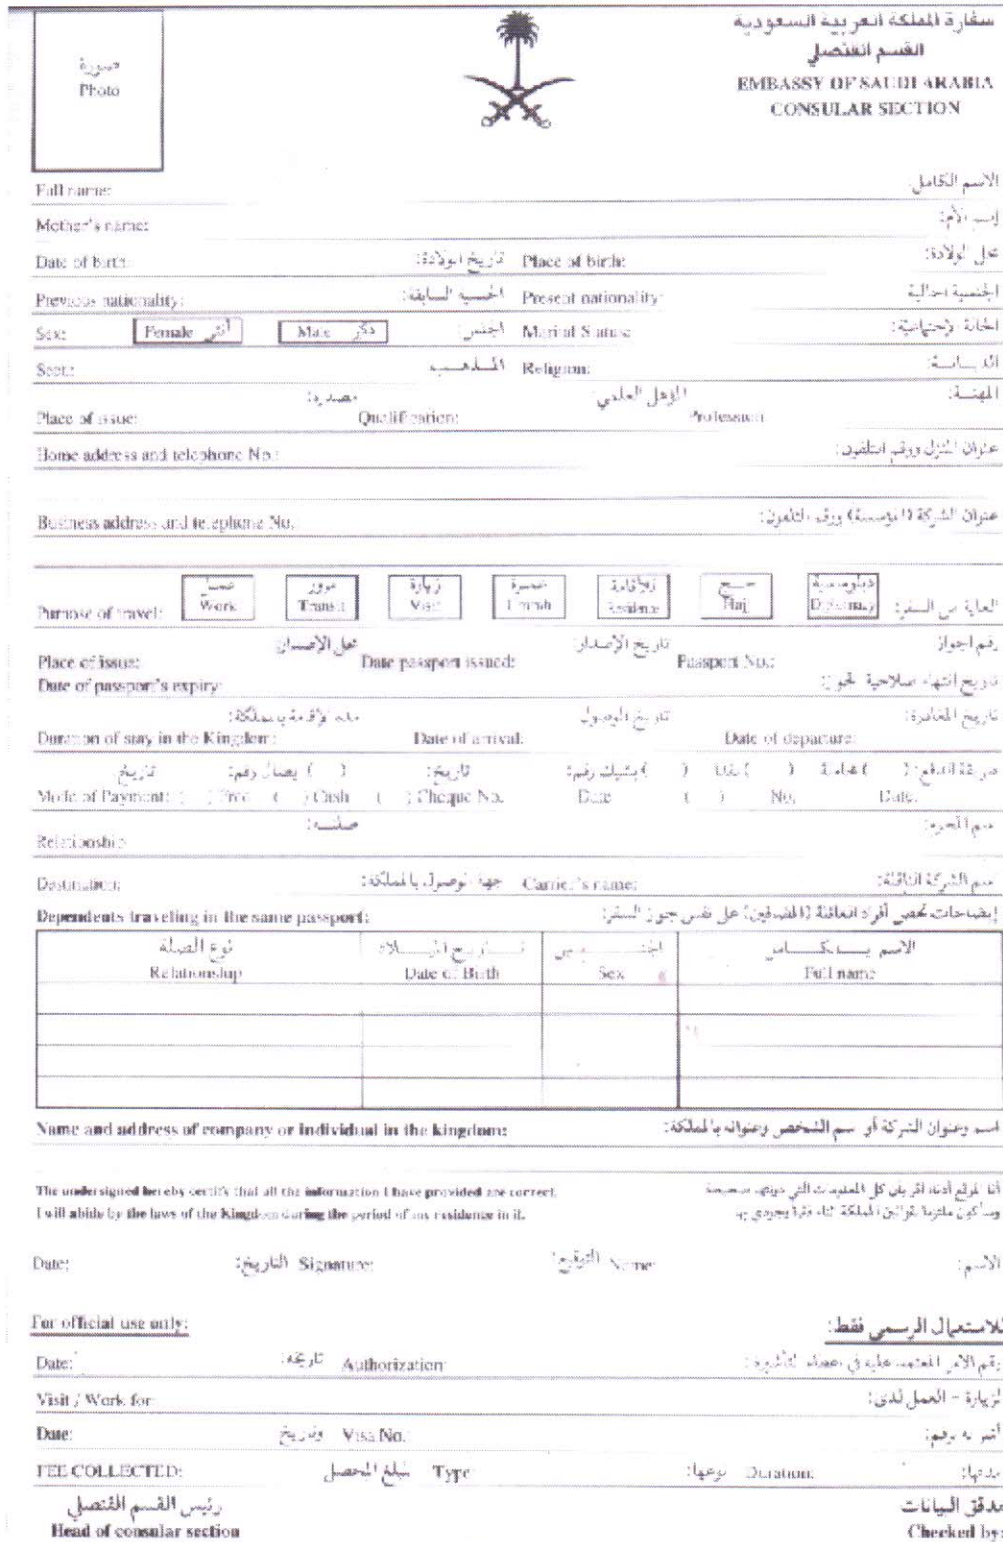 سفارة المملكة العربية السعودية
القسم القنصلي
EMBASSY OF SAUDI ARABIA
CONSULAR SECTION
صورة
Photo
Full name: الاسم الكامل:
Mother's name: إسم الأم:
Date of birth: تاريخ الولادة: Place of birth: محل الولادة:
Previous nationality: الجنسية السابقة: Present nationality: الجنسية الحالية
Sex: Female أنثى Male ذكر الجنس: Marital Status: الحالة الاجتماعية:
Sect: المذهب Religion: الديانة:
مصدره: المؤهل العلمي: المهنة:
Place of issue: Qualification: Profession
Home address and telephone No.: عنوان المنزل ورقم التلفون:
Business address and telephone No. عنوان الشركة (المؤسسة) ورقم التلفون:
عمل مرور زيارة عمرة للإقامة حج دبلوماسية
Purpose of travel: Work Transit Visit Umrah Residence Haj Diplomacy الغاية من السفر:
محل الإصدار: تاريخ الإصدار: رقم الجواز
Place of issue: Date passport issued: Passport No.:
Date of passport's expiry: تاريخ انتهاء صلاحية الجواز:
مدة الإقامة بالمملكة: تاريخ الوصول تاريخ المغادرة:
Duration of stay in the Kingdom: Date of arrival: Date of departure:
طريقة الدفع: ( ) مجاملة ( ) نقدا ( ) بشيك رقم: تاريخ: ( ) إيصال رقم: تاريخ
Mode of Payment: ( ) Free ( ) Cash ( ) Cheque No. Date ( ) No. Date:
صلته: اسم المحرم:
Relationship
Destination: جهة الوصول بالمملكة: Carrier's name: اسم الشركة الناقلة:
Dependents traveling in the same passport: إيضاحات تخص أفراد العائلة (المضافين) على نفس جواز السفر:
نوع الصلة تاريخ الميلاد الجنس الاسم بالكامل
Relationship Date of Birth Sex Full name
Name and address of company or individual in the kingdom: اسم وعنوان الشركة أو اسم الشخص وعنوانه بالمملكة:
The undersigned hereby certify that all the information I have provided are correct. أنا الموقع أدناه أقر بأن كل المعلومات التي دونتها صحيحة
I will abide by the laws of the Kingdom during the period of my residence in it. وسأكون ملتزما بقوانين المملكة أثناء فترة وجودي بها
Date: التاريخ: Signature: التوقيع: Name: الاسم:
For official use only: للاستعمال الرسمي فقط:
Date: تاريخه: Authorization: رقم الأمر المعتمد عليه في إعطاء التأشيرة:
Visit / Work for: لزيارة - العمل لدى:
Date: وتاريخ Visa No. أشر له برقم:
FEE COLLECTED: المبلغ المحصل Type نوعها: Duration: مدتها:
رئيس القسم القنصلي مدقق البيانات
Head of consular section Checked by: